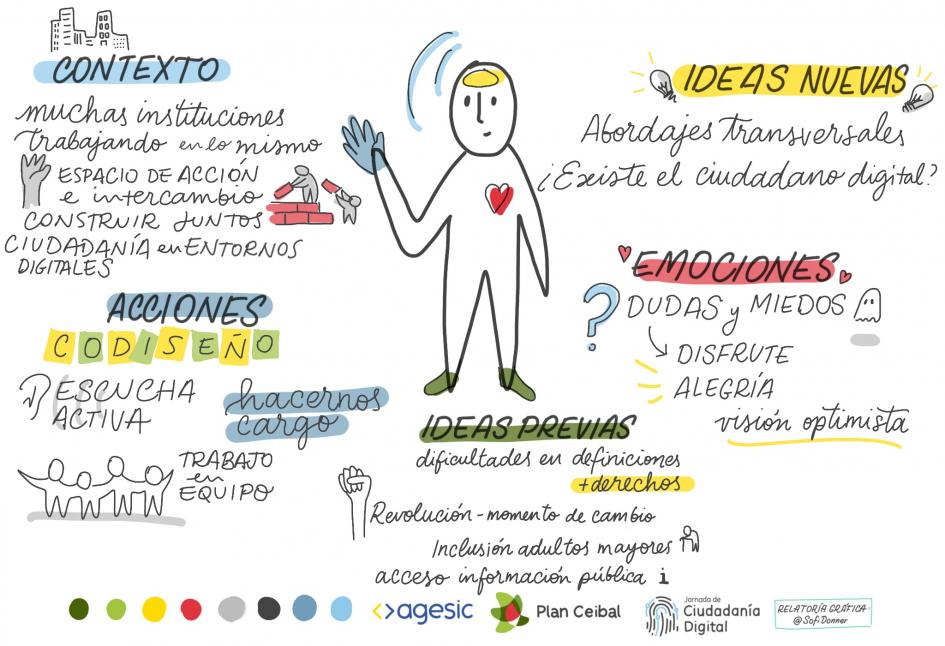 CONTEXTO
muchas instituciones
trabajando en lo mismo
ESPACIO DE ACCIÓN
e intercambio
CONSTRUIR JUNTOS
CIUDADANÍA en ENTORNOS
DIGITALES
ACCIONES
CODISEÑO
ESCUCHA
ACTIVA
hacernos
cargo
TRABAJO
en
EQUIPO
IDEAS NUEVAS
Abordajes transversales
¿Existe el ciudadano digital?
EMOCIONES
? DUDAS y MIEDOS
DISFRUTE
ALEGRÍA
visión optimista
IDEAS PREVIAS
dificultades en definiciones
+derechos
Revolución - momento de cambio
Inclusión adultos mayores
acceso información pública i
<>agesic
Plan Ceibal
Jornada de
Ciudadanía
Digital
RELATORÍA GRÁFICA:
@SofiDonner